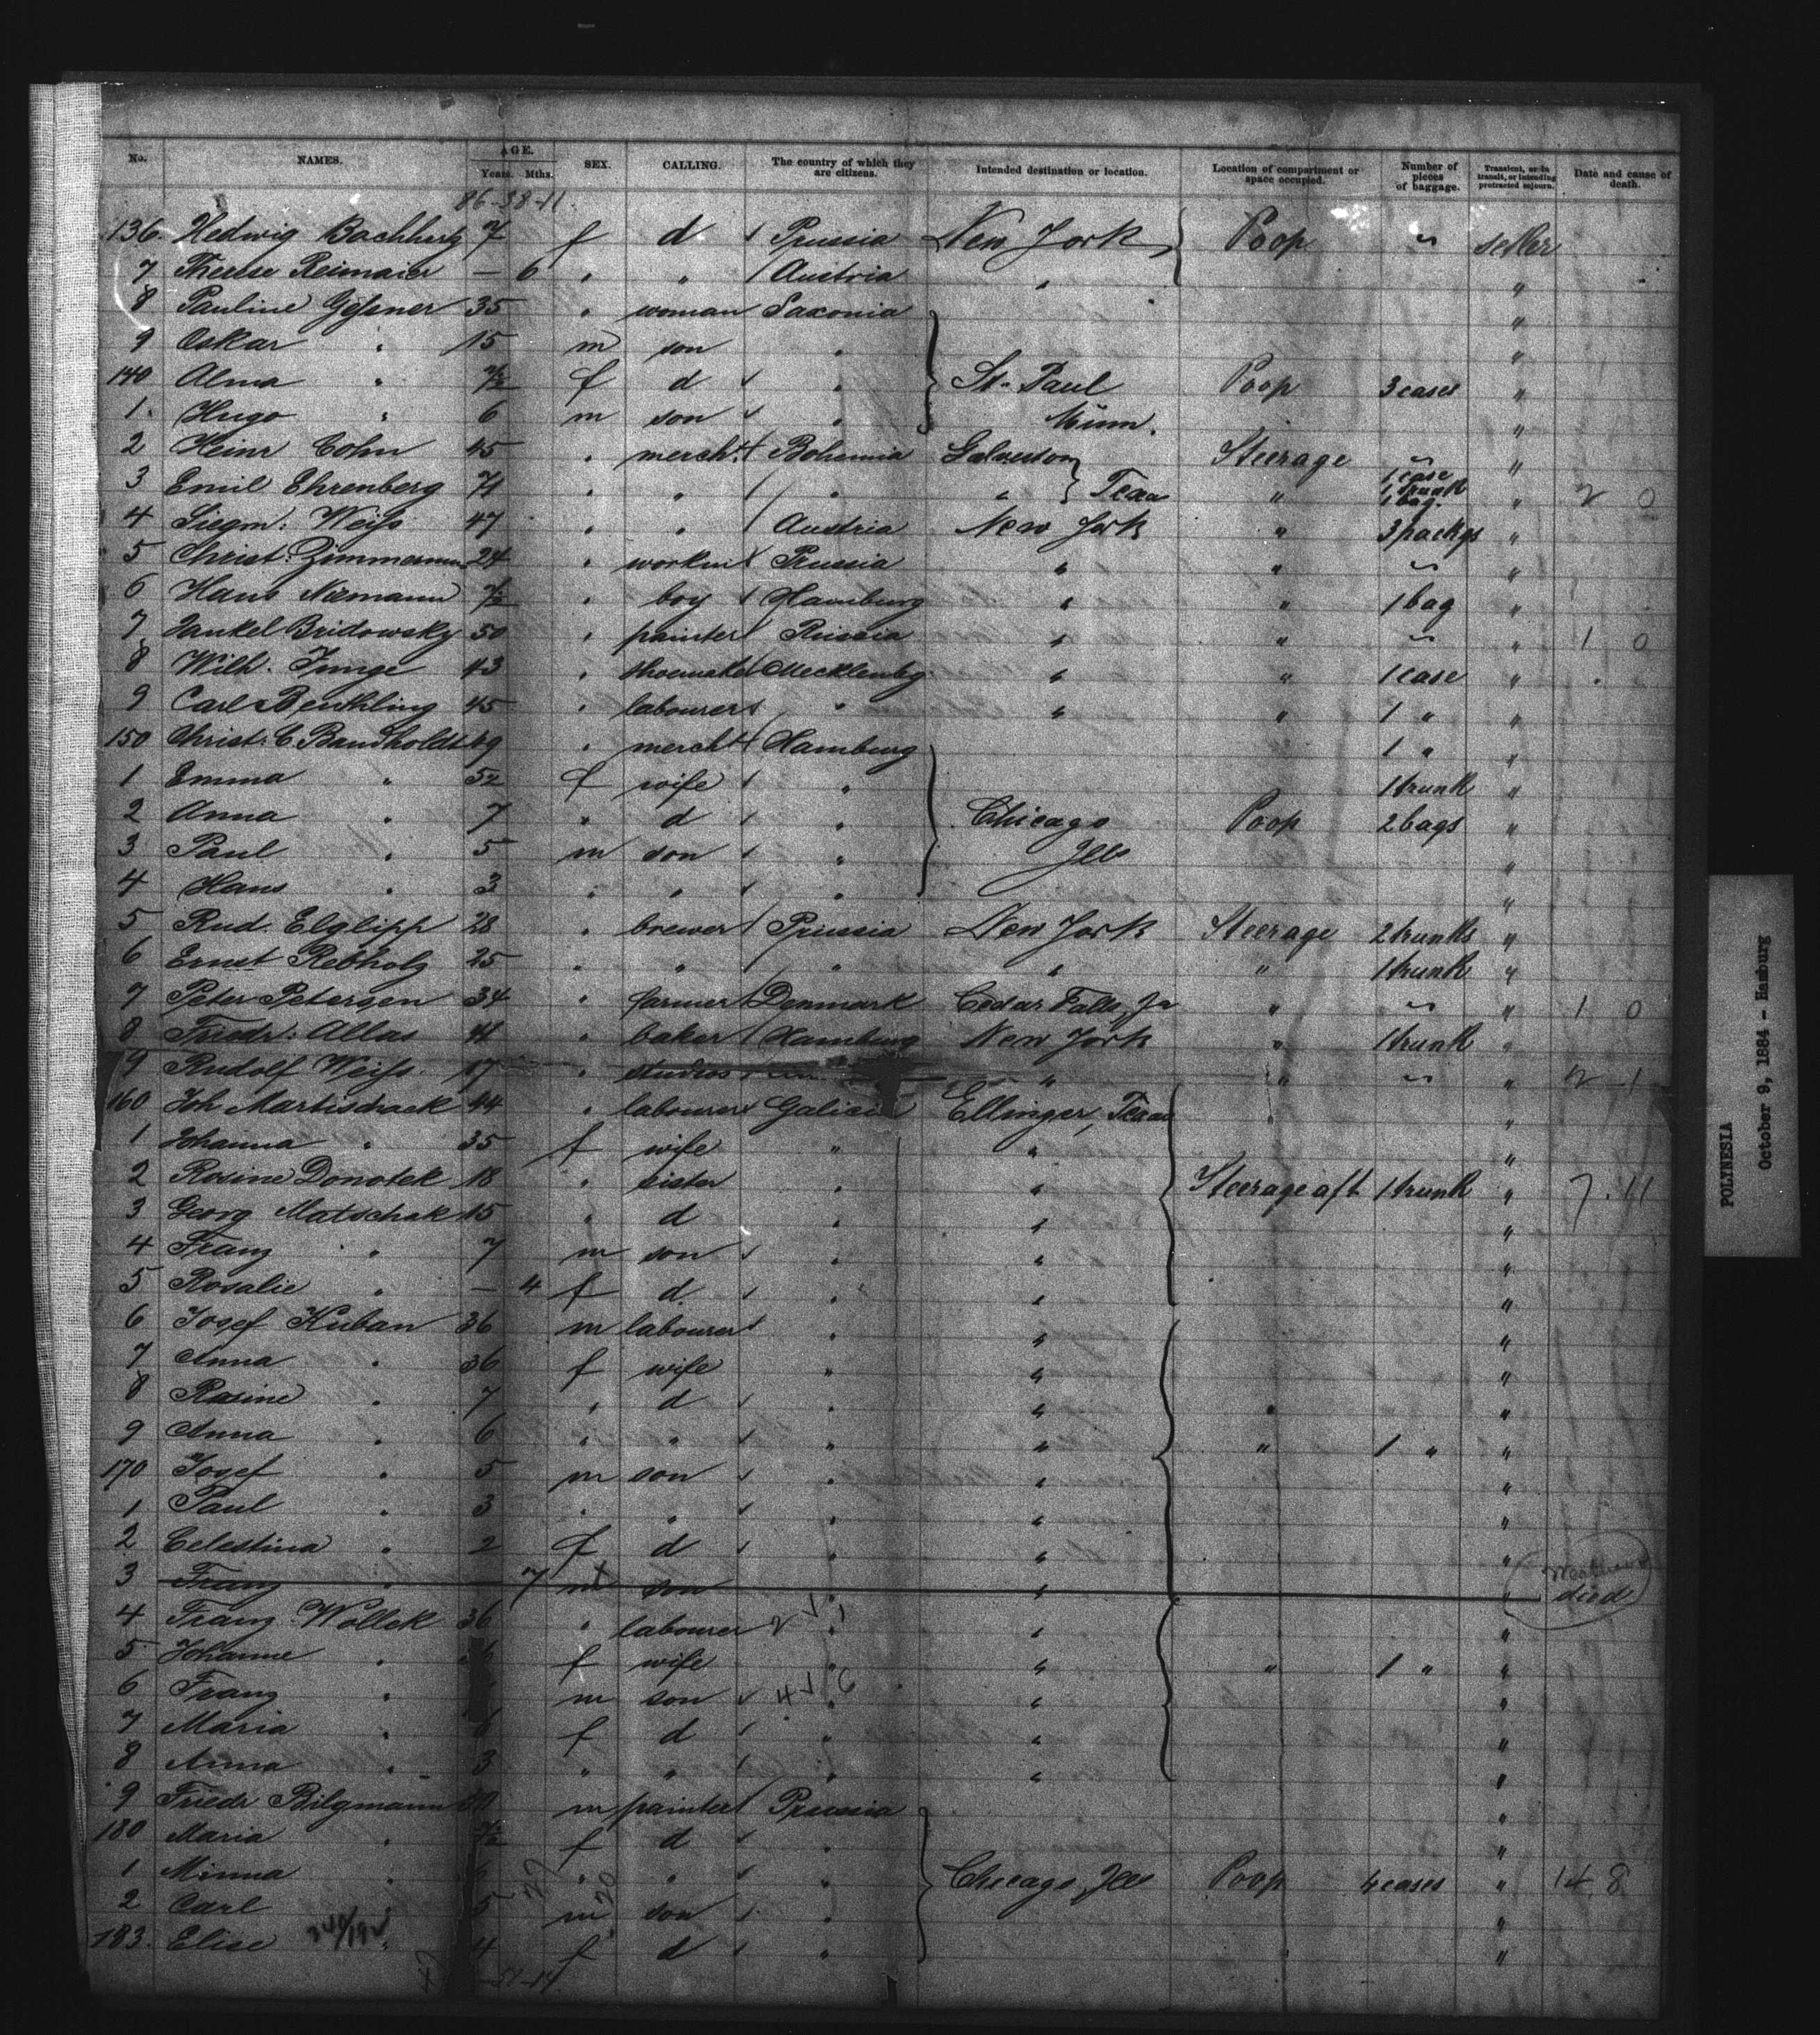 No. NAMES. AGE. Years. Mths. SEX. CALLING. The country of which they are citizens. Intended destination or location. Location of compartment or space occupied. Number of pieces of baggage. Transient, or in transit, or intending protracted sojourn. Date and cause of death.
86-38-11.
136. Hedwig 7 f d Prussia New York Poop settler
7 Therese Reimaier — 6 " " Austria "
8 Pauline Geßner 35 " woman Saxonia "
9 Oskar " 15 m son " "
140 Alma " f d " St. Paul Poop 3 cases "
1. Hugo " 6 m son " Minn. "
2 Heinr Cohn 45 " mercht Bohemia Galveston Steerage "
3 Emil Ehrenberg " " " " Texas " 1 case 1 trunk 1 bag. " 2 0
4 Siegm: Weiss 47 " " Austria New York " 3 packgs "
5 Christ: Zimmermann 24 " workm Prussia " " "
6 Hans Niemann " boy Hamburg " " 1 bag "
7 Jankel Bridowsky 50 " painter Russia " " " 1 0
8 Wilh. Junge 43 " shoemaker Mecklenbg. " " 1 case "
9 Carl Benthling 45 " labourer " " " 1 " "
150 Christ: C. Bandholdt 49 " mercht Hamburg 1 " "
1 Emma " 52 f wife " 1 trunk "
2 Anna " 7 " d " Chicago Poop 2 bags "
3 Paul " 5 m son " Ills "
4 Hans " 3 " " " "
5 Rud. Elglipp 28 " brewer Prussia New York Steerage 2 trunks "
6 Ernst Rebholz 25 " " " " " 1 trunk "
7 Peter Petersen 34 " farmer Denmark Cedar Falls, Ja " " 1 0
8 Friedr: Allas " baker Hamburg New York " 1 trunk "
9 Rudolf Weiss. 17 " " " " 2 1
160 Joh Martischack 44 " labourer Galicia Ellinger, Texas " "
1 Johanna " 35 f wife " " "
2 Rosine Donotek 18 " sister " " Steerage aft 1 trunk " 7. 11
3 Georg Matschak 15 " d " " "
4 Franz " 7 m son " " "
5 Rosalie " — 4 f d " " "
6 Josef Kuban 36 m labourer " " "
7 Anna " 36 f wife " " "
8 Rosine " 7 " d " " " "
9 Anna " 6 " " " " " 1 " "
170 Josef " 5 m son " " "
1 Paul " 3 " " " " "
2 Celestina " 2 f d " " "
3 Franz " 7 m son " " " died
4 Franz Wollek 36 " labourer " " "
5 Johanne " f wife " " " 1 " "
6 Franz " m son " " "
7 Maria " 6 f d " " "
8 Anna " 3 " " " " "
9 Friedr Bilgmann m painter Prussia "
180 Maria " f d " "
1 Minna " 6 " " " Chicago, Ills Poop 4 cases " 14. 8
2 Carl " 5 m son " "
183. Elise " 4 f d " "
POLYNESIA
October 9, 1884 - Hamburg